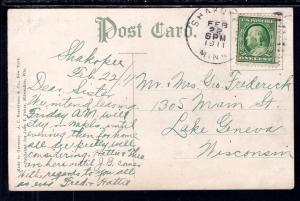 Post Card.
SHAKOPEE
FEB
22
5 PM
1911
MINN.
ONE CENT
Shakopee
Feb. 22/11
Dear Sister
We intend leaving
Friday A.M. will
stay in Mapleton until
evening then for home
all are pretty well
considering. Hattie &
are here until J.B. comes
With regards to you all
as ever Fred & Hattie
Mr. & Mrs. Geo. Frederick
1305 Main St.
Lake Geneva
Wisconsin